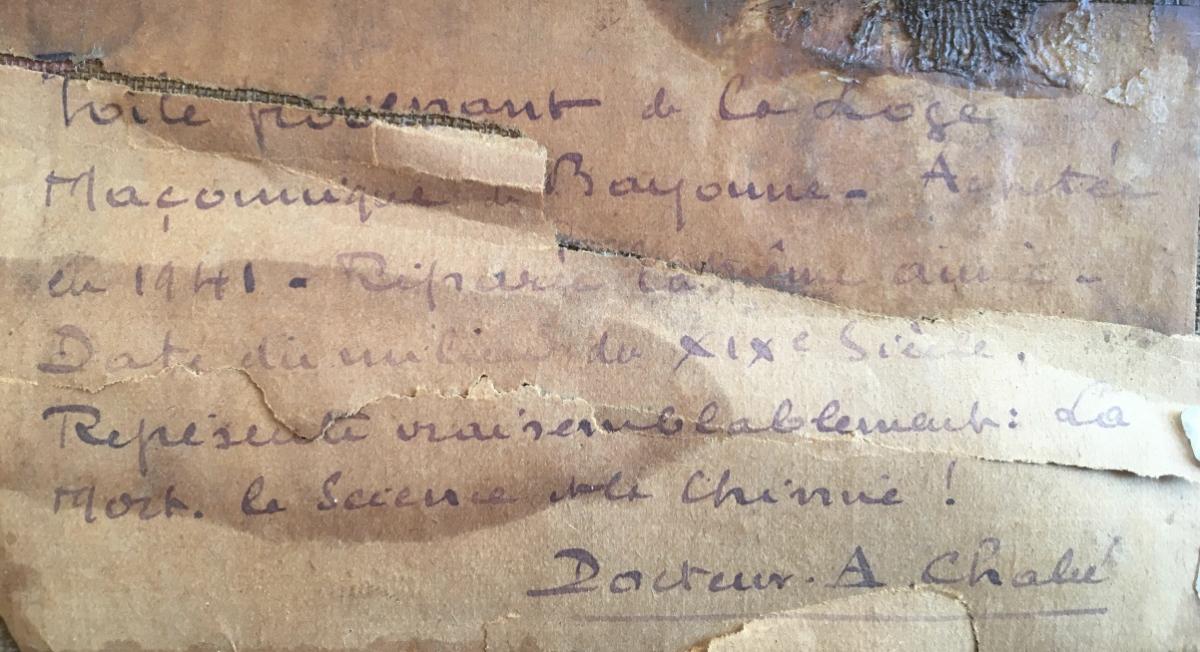 Toile provenant de la Loge
Maçonnique de Bayonne - Achetée
en 1941 - Réparée la même année -
Date du milieu du XIXe Siècle.
Représente vraisemblablement : La
Mort. la Science et la Chimie !
Docteur. A.